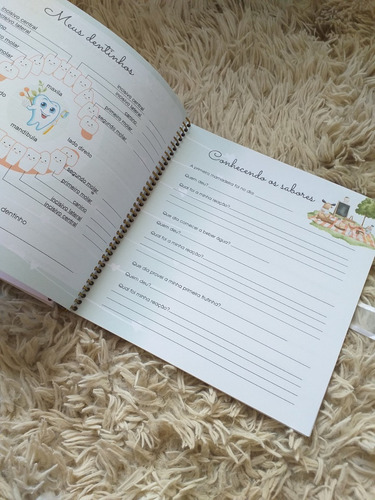 Meus dentinhos
incisivo central
incisivo lateral
molar
molar
maxila
mandíbula
lado direito
incisivo central
incisivo lateral
canino
primeiro molar
segundo molar
segundo molar
primeiro molar
canino
incisivo lateral
incisivo central
dentinho
Conhecendo os sabores
A primeira mamadeira foi no dia
Quem deu?
Qual foi a minha reação?
Que dia comecei a beber água?
Quem deu?
Qual foi a minha reação?
Que dia provei a minha primeira frutinha?
Quem deu?
Qual foi minha reação?